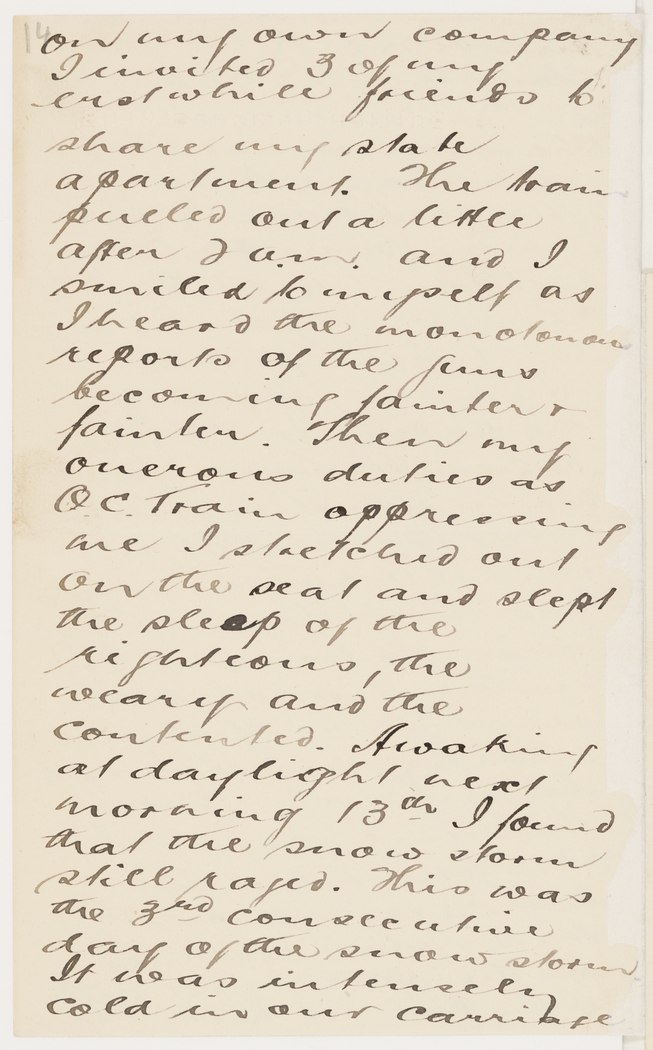 14
on my own company
I invited 3 of my
erstwhile friends to
share my state
apartment. The train
pulled out a little
after 2 a.m. and I
smiled to myself as
I heard the monotonous
reports of the guns
becoming fainter &
fainter. Then my
onerous duties as
O.C. Train oppressing
me I stretched out
on the seat and slept
the sleep of the
righteous, the
weary and the
contented. Awaking
at daylight next
morning 13th I found
that the snow storm
still raged. This was
the 3rd consecutive
day of the snow storm.
It was intensely
cold in our carriage